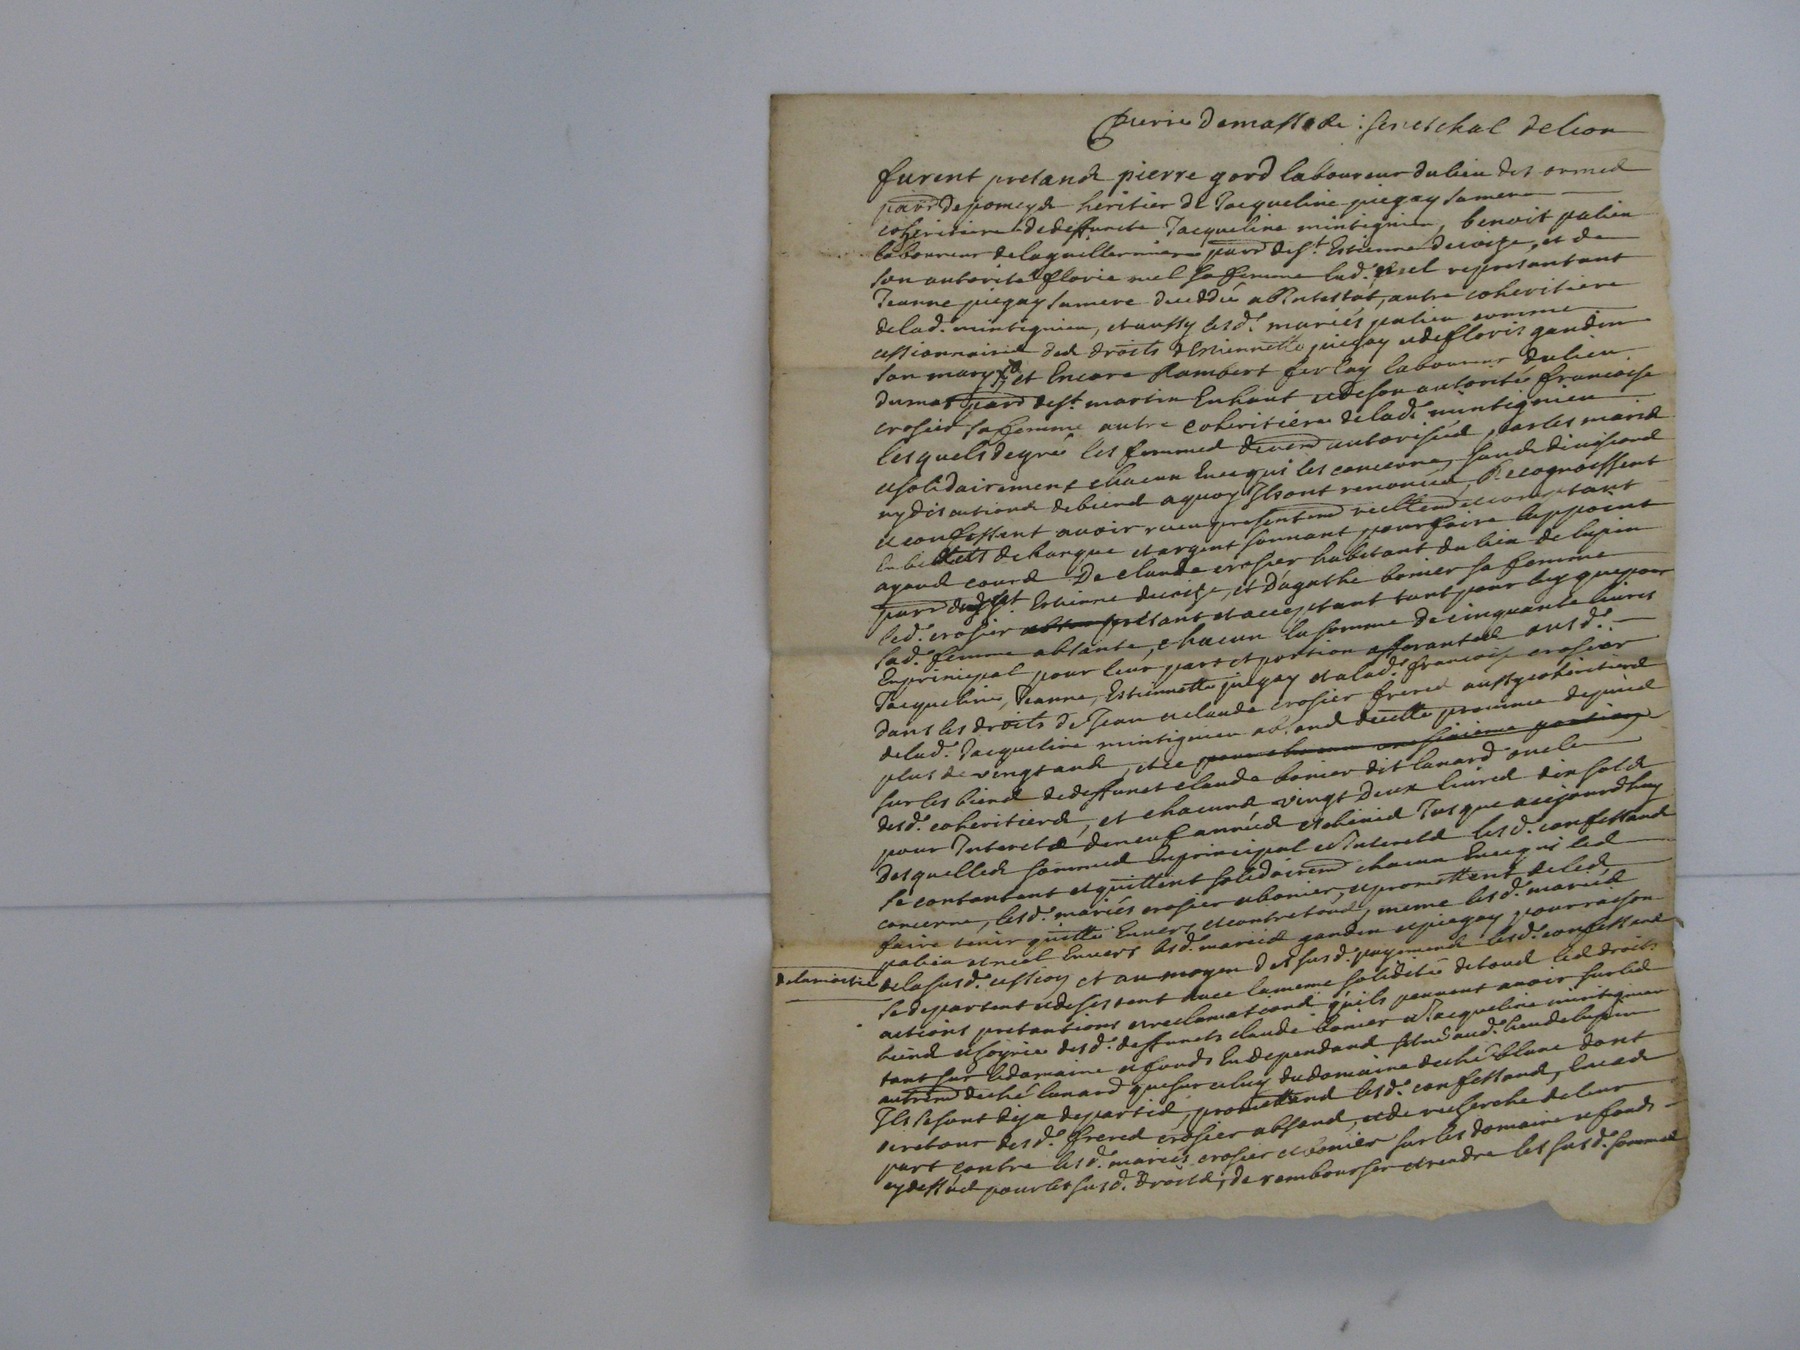 Pierre de masso de : seneschal de lion
furent presands pierre gord laboureur du lieu des ormes
parr. de pomeys heritier de Jacqueline piegay sa mere
coheritiere de deffuncte Jacqueline mintignieu, benoit palieu
laboureur de la guillermiere parr. de st. Estienne de coize, et de
son autorité florie nuel sa femme lad. nuel representant
Jeanne piegay sa mere deceddée abintestat, autre coheritiere
de lad. mintignieu, et aussy lesd. mariés palieu comme
cessionnaires des droits d'Estiennette piegay et de floris gandin
son mary, et Encore Rambert ferlay laboureur du lieu
du mas parr. de st. martin En haut et de son autorité francoise
crosier sa femme autre coheritiere de lad. mintignieu
lesquels de gré les femmes deuem. autorisées par les maris
et solidairement chacun En ce qui les concerne, sans divisions
ny discutions de biens a quoy Ils ont renoncé, Recognoissent
et confessent avoir receu presentem. reellem. et comptant
En billets de banque et argent sonnant pour faire lappoint
ayand cours De claude crosier habitant du lieu de lupin
parr. dud. st. Estienne de coize, et d'agathe bonier sa femme
led. crosier present et acceptant tant pour luy que pour
sad. femme absante, chacun la somme de cinquante livres
En principal pour leur part et portion afferantes ausd.
Jacqueline, Jeanne, Estiennette piegay et a lad. francoise crosier
dans les droits de Jean et claude crosier freres aussy coheritiers
de lad. Jacqueline mintignieu absands de cette province depuis
plus de vingt ans, et ce pour chacun une sixieme portion
sur les biens de deffunct claude bonier dit lunard oncle
desd. coheritiers, et chacuns vingt deux livres dix sols
pour Interets de neuf années escheues Jusque a cejourdhuy
Desquelles sommes En principal et Interets lesd. confessans
se contantent et quittent solidairem. chacun En ce qui les
concerne, lesd. mariés crosier et bonier, et promettent de les
faire tenir quitte Envers et contre tous, meme lesd. mariés
palieu et nuel Envers lesd. mariés gandin et piegay pour raison
de la susd. cession et au moyen des susd. payemens lesd. confessans
se departent et desistent avec la meme solidité de tous les droits
actions pretantions et reclamations qu'ils peuvent avoir sur les
biens et hoyrie desd. deffuncts claude bonier et Jacqueline mintignieu
tant sur le domaine et fonds En dependand situé aud. lieu de lupin
autrem. de chés lunard que sur celuy du domaine de chés blanc dont
Ils se sont deja departis, promettand lesd. confessans, En cas
de retour desd. freres crosier absans, et de recherche de leur
part contre lesd. mariés crosier et bonier sur les domaine et fonds
cy dessus pour les susd. droits, de rembourser et rendre les susd. sommes